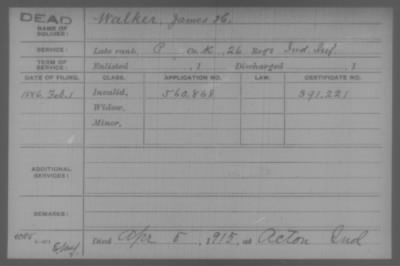 DEAD
NAME OF SOLDIER: Walker, James H.
SERVICE: Late rank, P Co. K, 26 Reg't Ind. Inf
TERM OF SERVICE: Enlisted , 1 Discharged , 1
DATE OF FILING. CLASS. APPLICATION NO. LAW. CERTIFICATE NO.
1886, Feb. 1 Invalid, 560,868 391,221
Widow,
Minor,
ADDITIONAL SERVICES:
REMARKS:
Died Apr 5, 1915, at Acton Ind